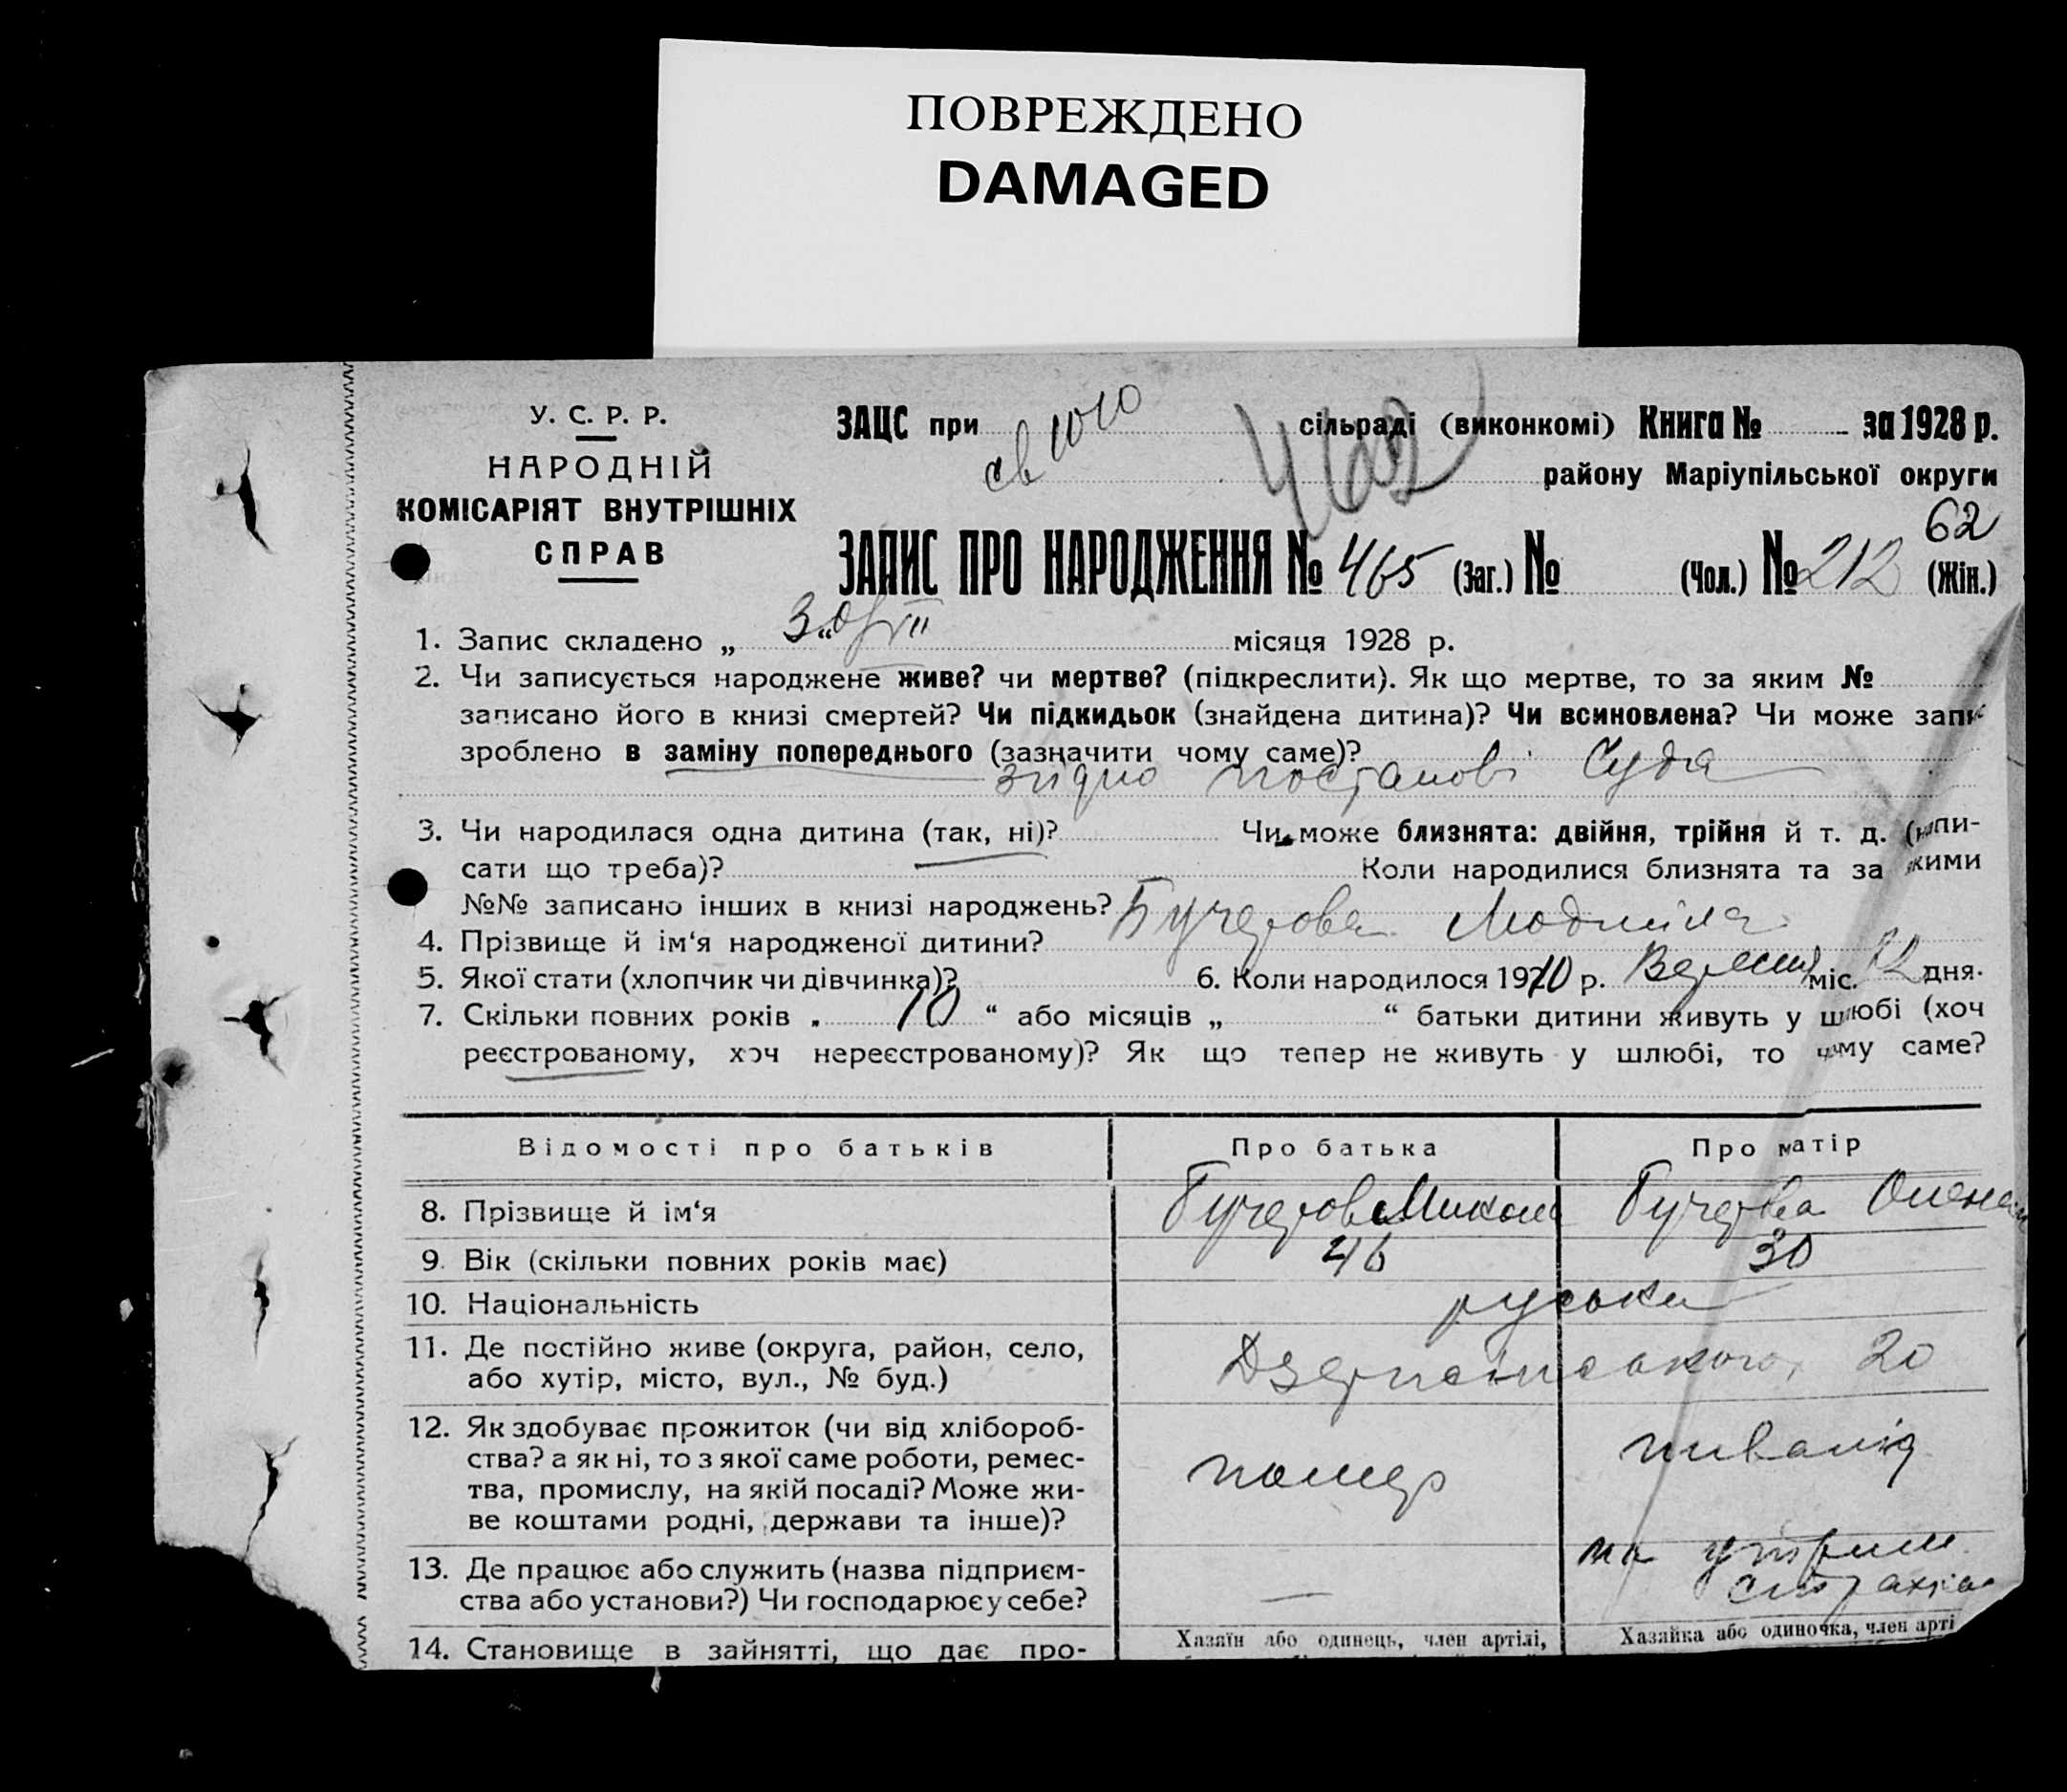 ПОВРЕЖДЕНО
DAMAGED
У. С. Р. Р.
НАРОДНІЙ
КОМІСАРІЯТ ВНУТРІШНІХ
СПРАВ
ЗАЦС при сільраді (виконкомі) Книга № за 1928 р.
462
району Маріупільської округи
62
ЗАПИС ПРО НАРОДЖЕННЯ № 465 (Заг.) № (Чол.) № 212 (Жін.)
1. Запис складено „ 30/VII “ місяця 1928 р.
2. Чи записується народжене живе? чи мертве? (підкреслити). Як що мертве, то за яким №
записано його в книзі смертей? Чи підкидьок (знайдена дитина)? Чи всиновлена? Чи може
зроблено в заміну попереднього (зазначити чому саме)?
згідно постанові Суда
3. Чи народилася одна дитина (так, ні)? Чи може близнята: двійня, трійня й т. д. (напи-
сати що треба)? Коли народилися близнята та за якими
№№ записано інших в книзі народжень?
4. Прізвище й ім‘я народженої дитини? Бучерова Людмила
5. Якої стати (хлопчик чи дівчинка)? 6. Коли народилося 1910 р. Вересня міс. 12 дня.
7. Скільки повних років „ 10 “ або місяців „ “ батьки дитини живуть у шлюбі (хоч
реєстрованому, хоч нереєстрованому)? Як що тепер не живуть у шлюбі, то чому саме?
Відомості про батьків Про батька Про матір
8. Прізвище й ім‘я Бучеров Микола Бучерова Олена
9. Вік (скільки повних років має) 46 30
10. Національність руські
11. Де постійно живе (округа, район, село,
або хутір, місто, вул., № буд.) Дзержинського, 20
12. Як здобуває прожиток (чи від хлібороб-
ства? а як ні, то з якої саме роботи, ремес-
тва, промислу, на якій посаді? Може жи-
ве коштами родні, держави та інше)? помер інвалід
13. Де працює або служить (назва підприєм-
ства або установи?) Чи господарює у себе? — на утрим.
14. Становище в зайнятті, що дає про- Хазяїн або одинець, член артілі, Хазяйка або одиночка, член арті